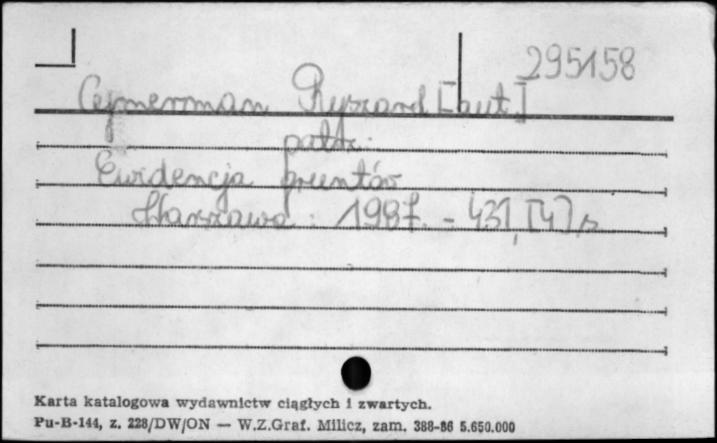 295158
Cymerman Ryszard [aut.]
patrz:
Ewidencja gruntów
Warszawa : 1987. - 431, [4] s
Karta katalogowa wydawnictw ciągłych i zwartych.
Pu-B-144, z. 228/DW/ON — W.Z.Graf. Milicz, zam. 388-86 5.650.000